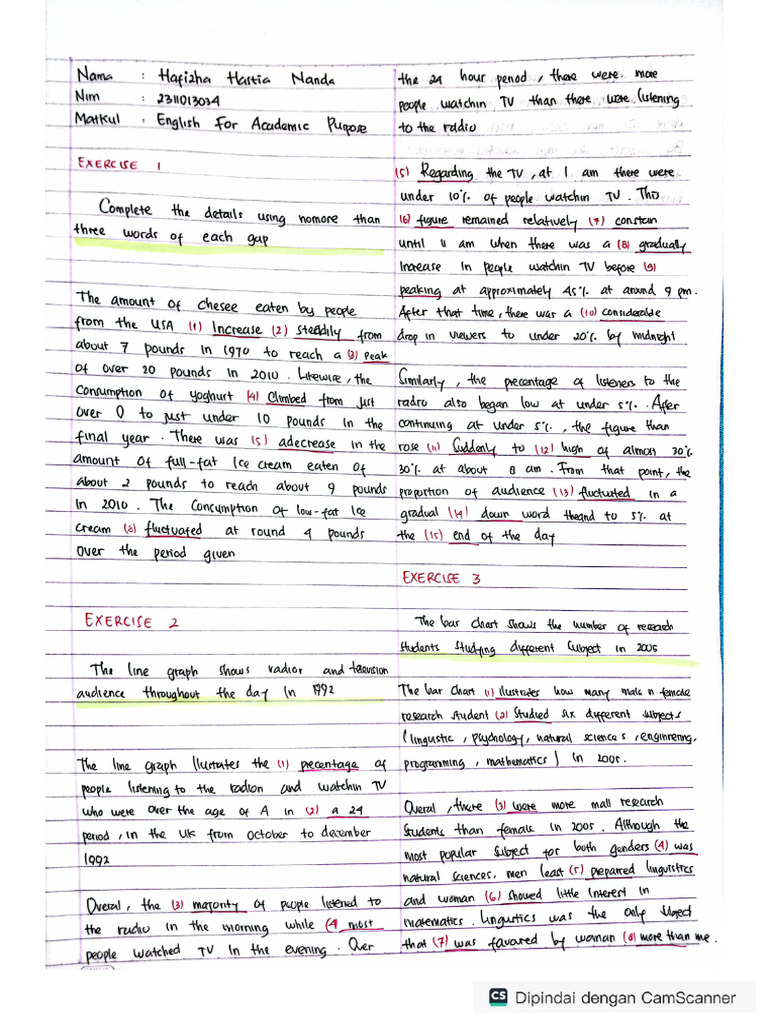 Nama : Hafizha Hastia Nanda
Nim : 2311013034
Matkul : English For Academic Pupose
EXERCISE 1
Complete the details using nomore than
three words of each gap
The amount of chesee eaten by people
from the USA (1) Increase (2) steadily from
about 7 pounds in 1970 to reach a (3) Peak
of over 20 pounds in 2010. Likewise, the
consumption of yoghurt (4) Climbed from Just
over 0 to just under 10 pounds in the
final year. There was (5) adecrease in the
amount of full-fat Ice cream eaten of
about 2 pounds to reach about 9 pounds
In 2010. The Consumption of low-fat Ice
cream (2) fluctuated at round 4 pounds
over the period given
EXERCISE 2
The line graph shows radior and television
audience throughout the day In 1992
The line graph Ilustrates the (1) pecentage of
people listening to the radion and watchin TV
who were over the age of A in (2) a 24
period, in the UK from October to december
1992
Overal, the (3) majority of people listened to
the radio in the morning while (4 most
people watched TV In the evening. Over
the 24 hour period, there were more
people watchin TV than there were listening
to the radio
(5) Regarding the TV, at 1 am there were
under 10% of people watchin TV. Thi
(6) figure remained relatively (7) constan
until 4 am when there was a (8) gradually
Increase in people watchin TV before (9)
peaking at approximately 45% at around 9 pm.
After that time, there was a (10) considerable
drop in viewers to under 20% by midnight
Similarly, the pecentage of listeners to the
radio also began low at under 5%. After
continuing at under 5%, the figure than
rose (11) Suddenly to (12) high of almost 30%
30% at about 8 am. From that point, the
proportion of audience (13) fluctuated in a
gradual (14) down word to 5% at
the (15) end of the day
EXERCISE 3
The bar chart shows the number of reseach
students studying different subject in 2005
The bar chart (1) illustrates how many male n female
research student (2) Studied six different subjects
(linguistic, psychology, natural science s, enginnering,
programming, mathematics) in 2005.
Overal, there (3) were more mall research
students than female in 2005. Although the
most popular subject for both genders (4) was
natural sciences, men least (5) prepared linguistics
and woman (6) showed little Interest in
matematics. linguistics was the only subject
that (7) was favared by woman (8) more than me.
CS Dipindai dengan CamScanner